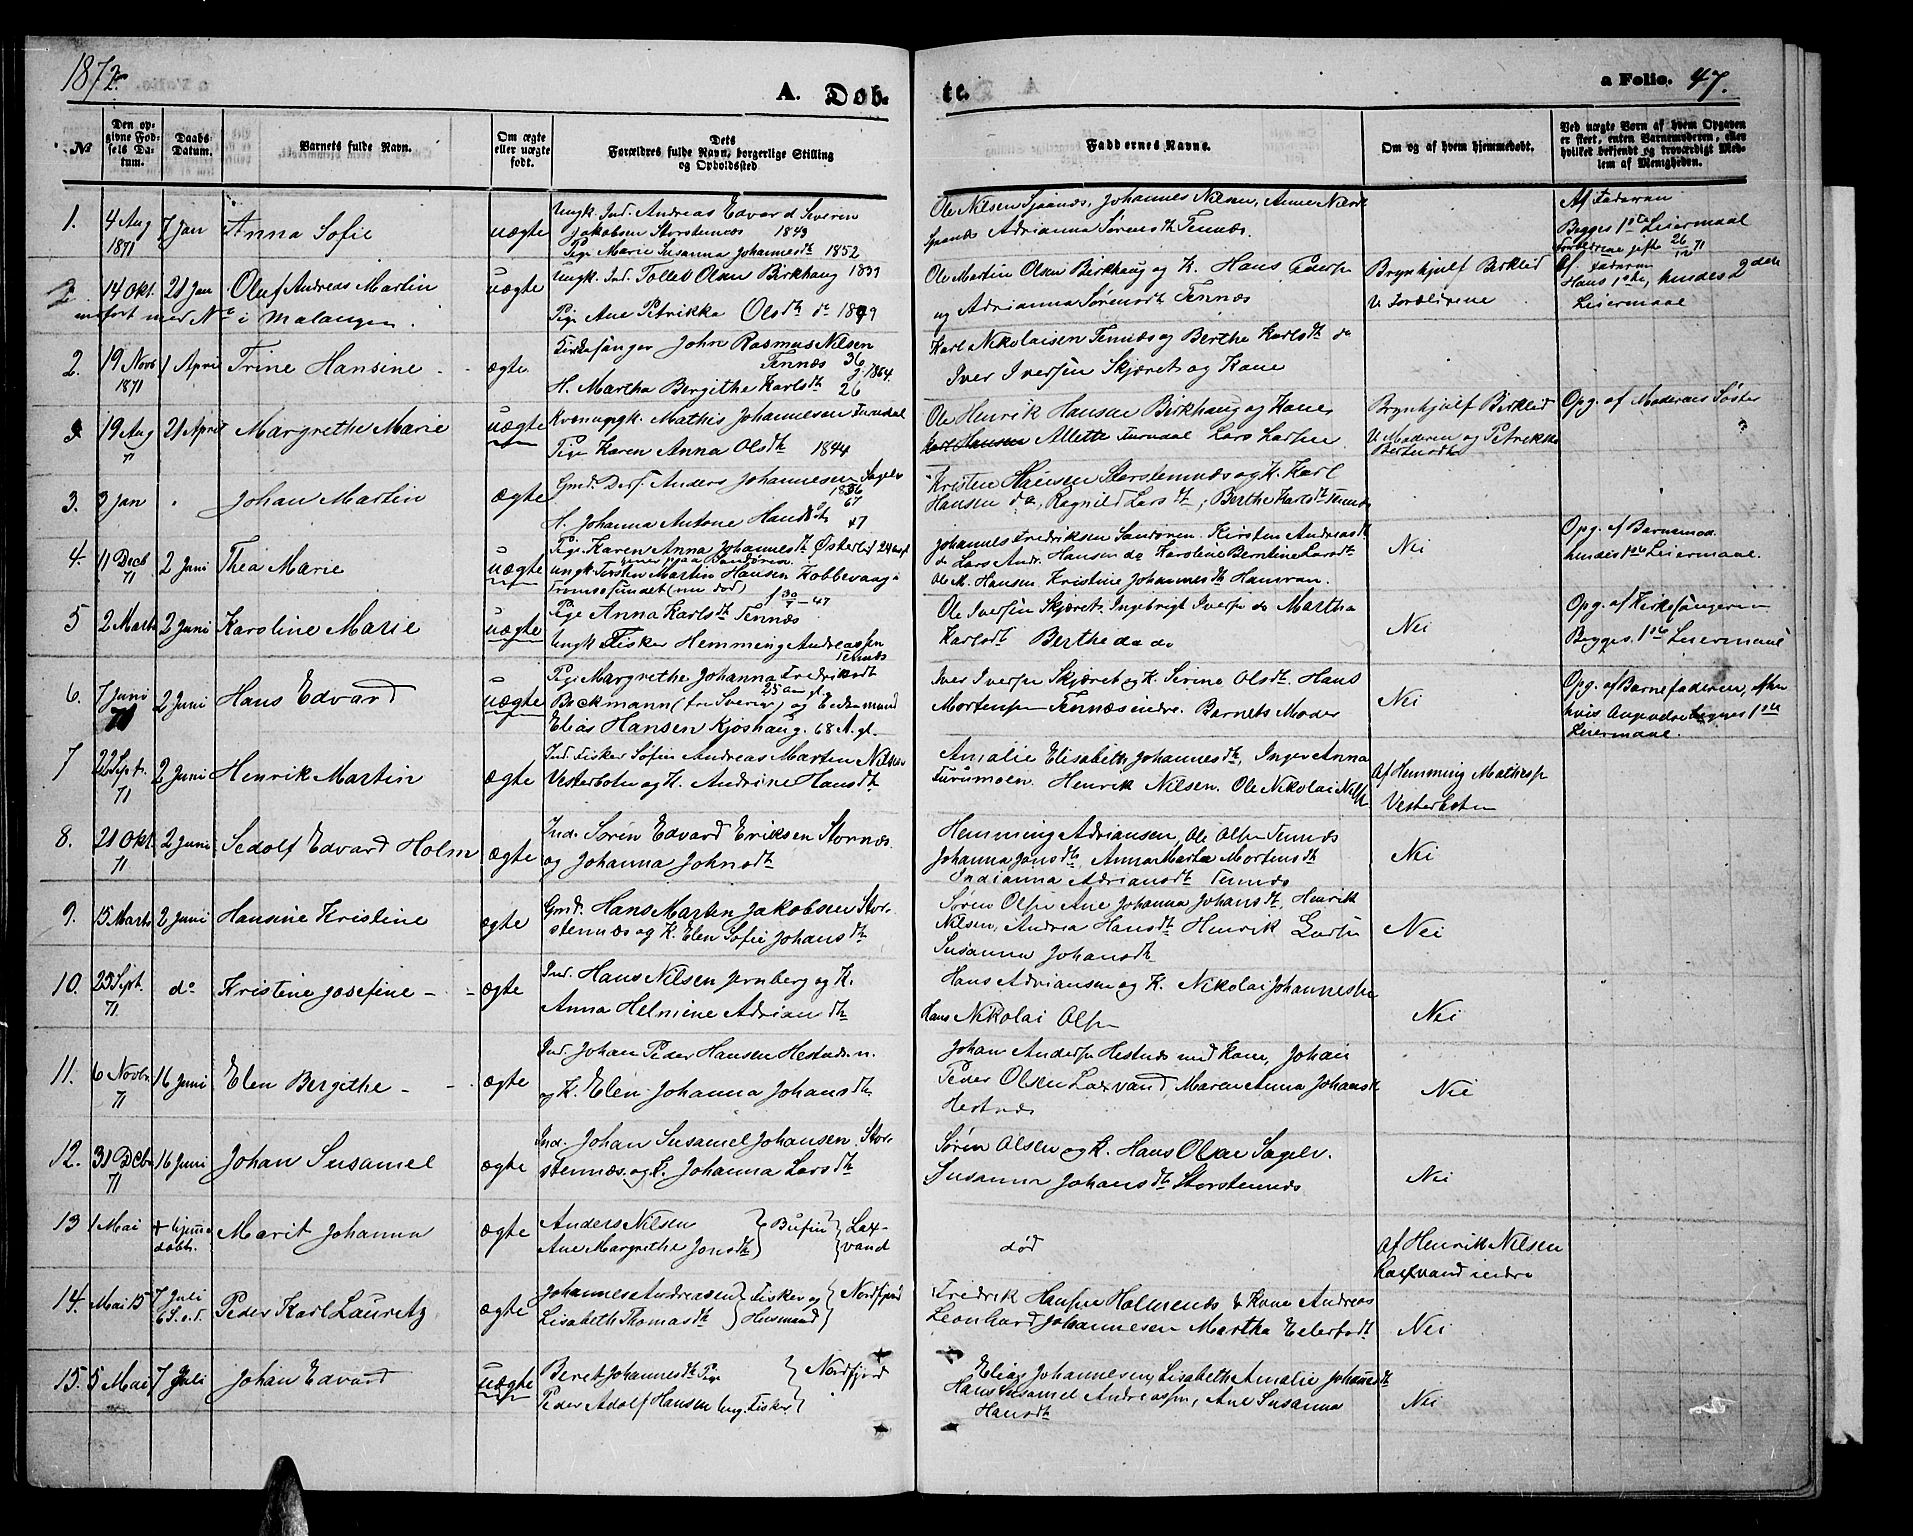 1872.
A. Døb-
te.
a Folio. 47.
№
Den op-
givne Fød-
sels Da-
tum.
Daabs-
Datum.
Barnets fulde Navn.
Om ægte
eller uægte
født.
Dets
Forældres fulde Navn, borgerlige Stilling
og Opholdssted
Faddernes Navne.
Om og af hvem hjemmedøbt.
Ved uægte Børn af hvem Opgaven
er skeet, enten Barnemoderen, eller
hvilket bekjendt og troværdigt Med-
lem af Menigheden.
1.
4 Aug
1871
7 Jan
Anna Sofie
uægte
Ungk. Ind. Andreas Edvard Severin
Jakobsen Storstennæs 1843
Pige Marie Susanna Johannesdt 1852
Ole Nilsen Sjaanæs, Johannes Nilsen, Anne
Adrianna Sørensdt Tennæs.
Af Faderen
Begges 1ste Leiermaal
Forældrene gifte 26/12 71
2.
14 Okt.
21 Jan
Oluf Andreas Martin
indført med No i Malangen.
uægte
Ungk. Ind. Tollef Olsen Birkhaug 1839
Pige Ane Petrikka Olsdt do 1849
Ole Martin Olsen Birkhaug og K. Hans Pedersen
og Adrianna Sørensdt Tennæs
Brynhjulf Birklid
v. Forældrene
Af Faderen
Hans 1ste, hendes 2den
Leiermaal
2.
19 Novb
1871
1 April
Trine Hansine
ægte
Kirkesanger John Rasmus Nilsen
Tennæs 36
g. 1864.
H. Martha Bergithe Karlsdt 26
Karl Nikolaisen Tennæs og Berthe Karlsdt do
Iver Iversen Skjæret og Kone
3
19 Aug
71
21 April
Margrethe Marie
uægte
Kvenungk. Mathis Johannesen Furudal
Pige Karen Anna Olsdt 1844
Ole Henrik Hansen Birkhaug og Kone,
Karl Hansen Allette Furudal Lars Larsen
Brynhjulf Birklid
v. Moderen og Petrikka
Berntsdt
Opg. af Moderens Søster
3.
3 Jan
Johan Martin
ægte
Gmd. Derf. Anders Johannesen Sagelv
1836
67
H. Johanna Antone Hansdt 47
Kristen Hansen Storstennæs og K. Karl
Hansen do, Ragnild Larsdt, Berthe Karlsdt Tennæs
4.
11 Decb
71
2 Juni
Thea Marie
uægte
Pige Karen Anna Johannesdt Østerlid 24 aar
tjener paa Sandøren
ungk. Torsten Martin Hansen Kobbevaag i
Tromsøsundet (nu død) f. 30/9 - 47
Johannes Fredriksen Sandøren. Kirsten Andreasdt
do Lars Andr. Hansen do Karoline Berntine Larsdt
Ole M. Hansen. Kristine Johannesdt Hamran.
Nei
Opg. af Barnemod.
hendes 1ste Leiermaal.
5
2 Marts
2 Juni
Karoline Marie
uægte
Pige Anna Karlsdt Tennæs
Ungk Fisker Hemming Andreassen
Tennæs
Ole Iversen Skjæret. Ingebrigt Iversen do Martha
Karlsdt Berthe do do
Nei
Opg. af Kirkesangeren
Begges 1ste Leiermaal
6.
7 Juni
71
2 Juni
Hans Edvard
uægte
Pige Margrethe Johanna Fredriksdt
25 aar gl.
Beckmann (fra Sverrig) og Enkemand
Elias Hansen Kjoshaug. 68 A. gl.
Iver Iversen Skjæret og K. Serine Olsdt. Hans
Mortensen Tennæs indre. Barnets Moder
Nei
Opg. af Barnefaderen, efter
hvis Angivelse begges 1ste
Leiermaal.
7
22 Sept.
71
2 Juni
Henrik Martin
ægte
Ind. Fisker Søfren Andreas Marten Nilsen
Vesterboten og K. Andrine Hansdt
Amalie Elisabeth Johannesdt, Inger Anna
Furumoen. Henrik Nilsen. Ole Nikolai Nilsen
Af Hemming Mathesen
Vesterboten
8.
21 Okt.
71
2 Juni
Sedolf Edvard Holm
ægte
Ind. Sørén Edvard Eriksen Stornæs
og Johanna Johnsdt
Hemming Adriansen, Ole Olsen Tennæs
Johanna Jonsdt, Anna Marta Mortensdt
Indianna Adriansdt Tennæs
Nei
9.
15 Marts
2 Juni
Hansine Kristine
ægte
Gmd. Hans Marten Jakobsen Stor-
stennæs og K. Elen Sofie Johansdt
Søren Olsen Ane Johanna Johansdt. Henrik
Nilsen, Andrea Hansdt Henrik Larsen
Susanna Johansdt
Nei
10.
25 Sept.
71
do
Kristine Josefine
ægte
Ind. Hans Nilsen Jernberg og K.
Anna Helmine Adriandt
Hans Adriansen og K. Nikolai Johannesen
Hans Nikolai Olsen
Nei
11.
6 Novbr
71
16 Juni
Elen Bergithe
ægte
Ind. Johan Peder Hansen Hestnæs n.
og K. Elen Johanna Johansdt
Johan Andersen Hestnæs med Kone, Johan
Peder Olsen Laxvand, Maren Anna Johansdt
Hestnæs
Nei
12.
31 Decbr
71
16 Juni
Johan Susamel
ægte
Ind. Johan Susamel Johansen. Stor-
stennæs og K. Johanna Larsdt
Søren Olsen og K. Hans Olai Sagelv.
Susanna Johansdt Storstennæs
Nei
13
1 Mai
+ hjemme
døbt.
Marit Johanna
ægte
Anders Nilsen
Ane Margrethe Jonsdt
Bufin
Lax-
vand
død
af Henrik Nilsen
Laxvand indre
14.
Mai 15
7 Juli
6 S. e. T.
Peder Karl Lauretz
ægte
Johannes Andreasen
Lisabeth Thomasdt
Fisker og
Husmand
Nordfjord
Fredrik Hansen Holmenæs & Kone Andreas
Leonhard Johannesen Martha Eilertsdt
Nei
15.
5 Mai
7 Juli
Johan Edvard
uægte
Beret Johannesdt Pige
Peder Adolf Hansen Ung. Fisker
Nordfjord
Elias Johannesen, Lisabeth Amalie Johansdt
Hans Susamel Andreassen, Ane Susanna
Hansdt
Nei